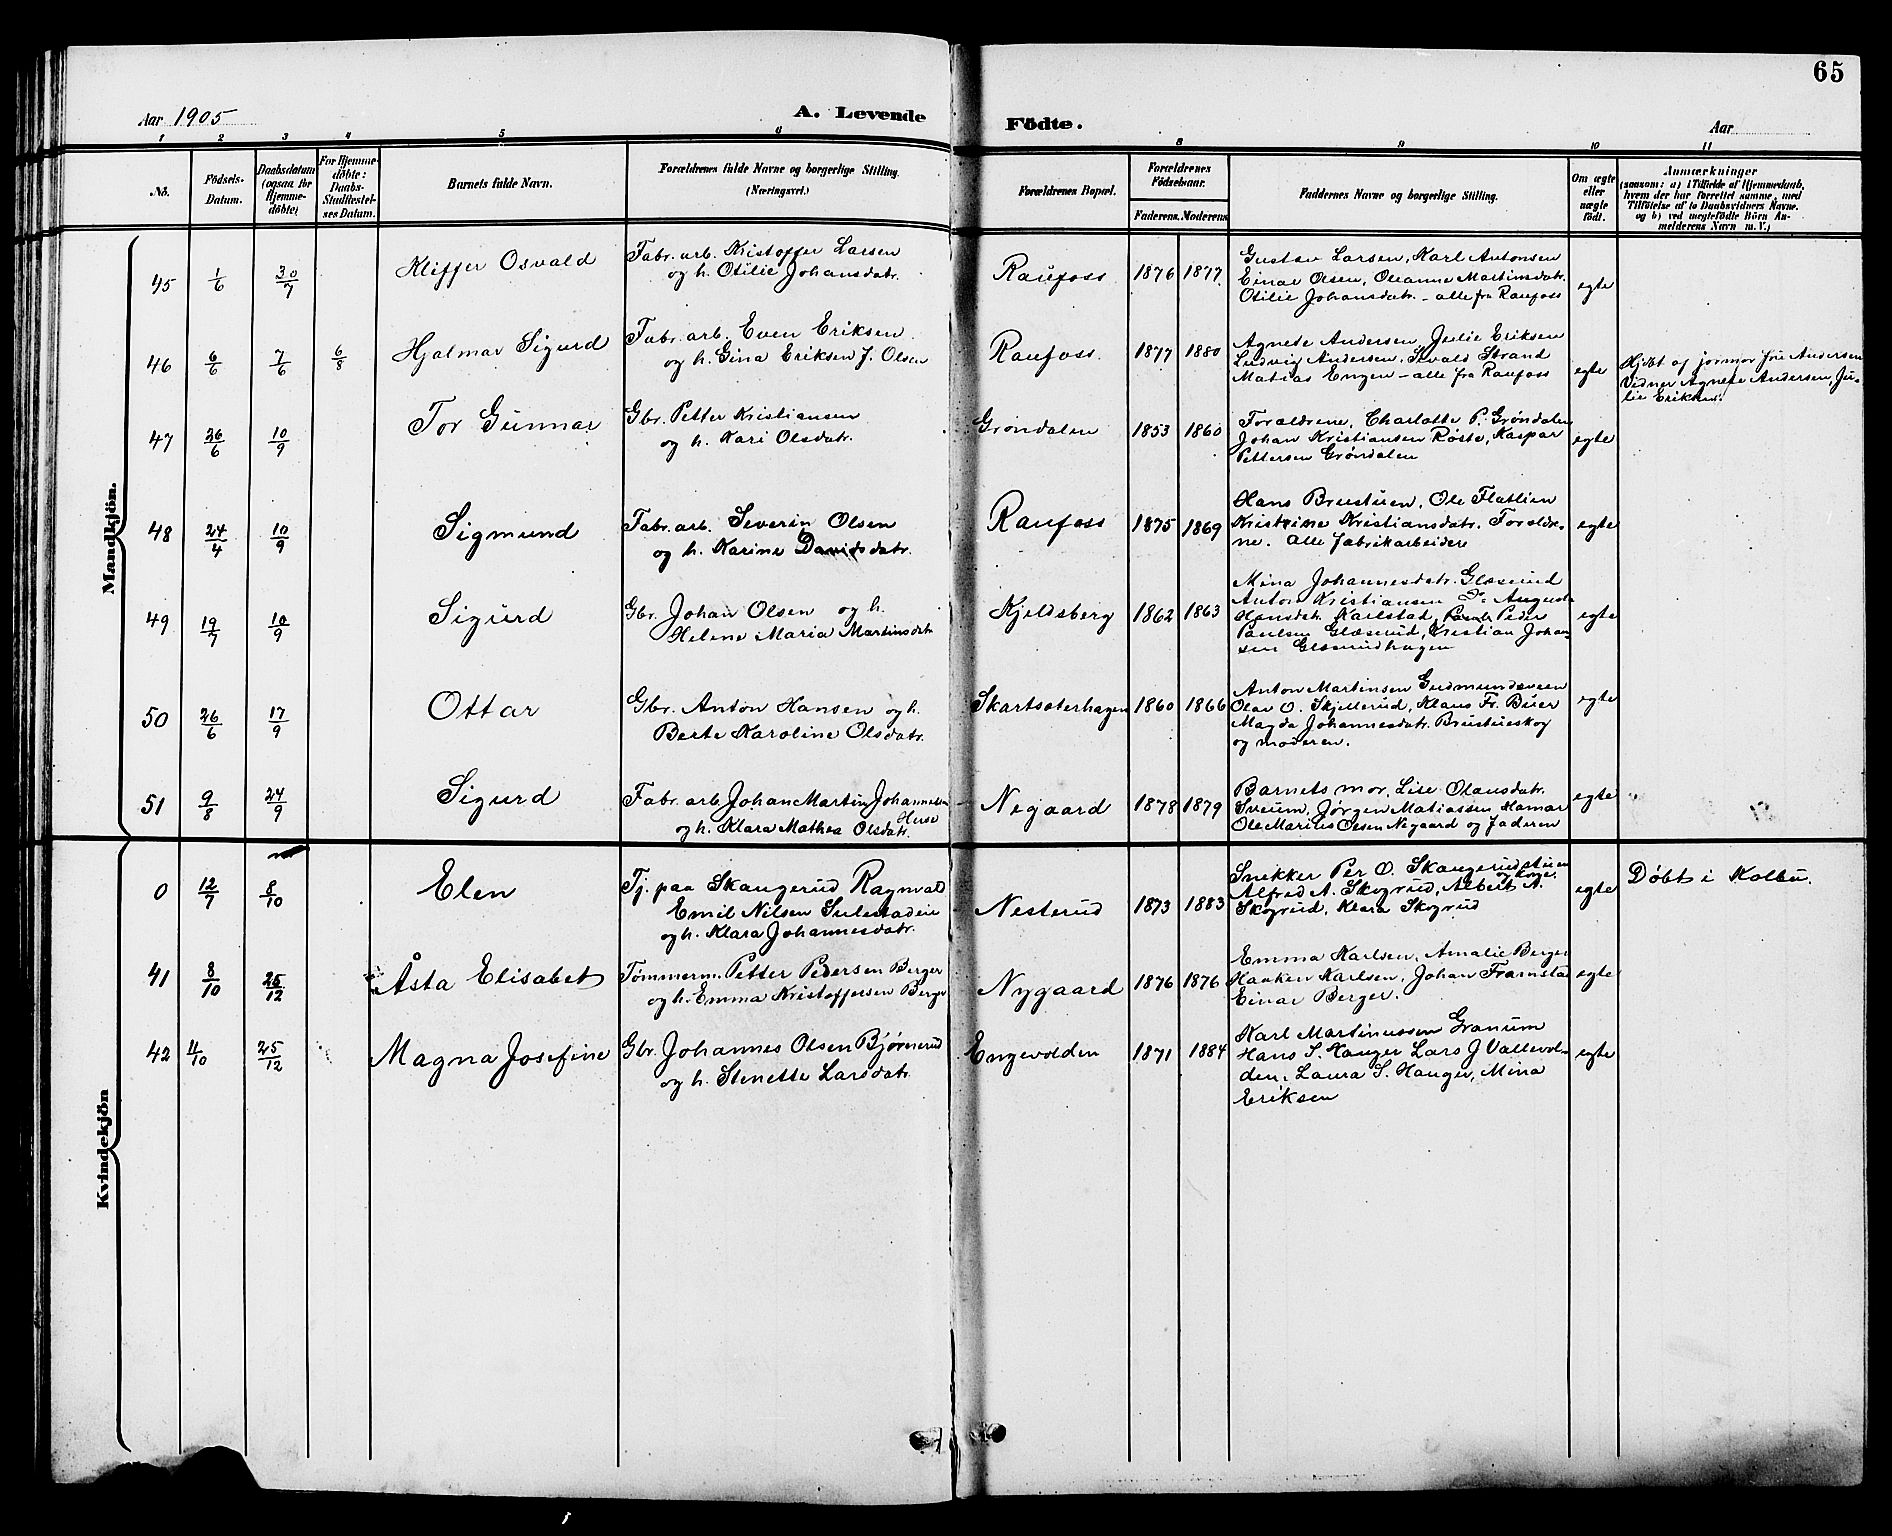 65
Aar 1905
A. Levende
Födte.
Aar
1 2 3 4 5 6 8 9 10 11
No.
Födsels-
Datum.
Daabsdatum
(ogsaa for
Hjemme-
döbte)
For Hjemme-
döbte:
Daabs-
Stadfæstel-
ses Datum.
Barnets fulde Navn.
Forældrenes fulde Navne og borgerlige Stilling.
(Næringsvei.)
Forældrenes Bopæl.
Forældrenes
Födselsaar.
Faderens. Moderens
Faddernes Navne og borgerlige Stilling.
Om ægte
eller
uægte
födt.
Anmærkninger
(saasom: a) i Tilfælde af Hjemmedaab,
hvem der har forrettet samme, med
Tilföielse af to Daabsvidners Navne.
og b) ved uegtefödte Börn An-
melderens Navn m. V.)
Mandkjön.
45 1/6 30/7 Kliffer Osvald
Fabr. arb. Kristoffer Larsen
og h. Otilie Johansdatr.
Raufoss 1876 1877
Gustav Larsen, Karl Antonsen
Einar Olsen, Oleanne Martinsdatr.
Otilie Johansdatr. - alle fra Raufoss
egte
46 6/6 7/6 6/8 Hjalmar Sigurd
Fabr. arb. Even Eriksen
og h. Gina Eriksen f. Olsen
Raufoss. 1877 1880
Agnete Andersen, Julie Eriksen
Ludvig Andersen, Sevald Strand
Matias Engen - alle fra Raufoss
egte
Hjdbt af jormor fru Andersen
Vidner Agnete Andersen, Ju-
lie Eriksen.
47 26/6 10/9 Tor Gunnar
Gbr. Petter Kristiansen
og h. Kari Olsdatr.
Grøndalen 1853 1860
Forældrene, Charlotte P. Grøndalen
Johan Kristiansen Røste, Kaspar
Pettersen Grøndalen
egte
48 24/4 10/9 Sigmund
Fabr. arb. Severin Olsen
og h. Karine Davidsdatr.
Raufoss 1875 1869
Hans Brustuen, Ole Flatlien
Kristine Kristiansdatr. Foreldre-
ne. Alle fabrikarbeidere
egte
49 19/7 10/9 Sigurd
Gbr. Johan Olsen og h.
Helene Maria Martinsdatr
Kjeldsberg 1862 1863
Mina Johannesdatr. Glæserud
Anton Kristiansen Do Augusta
Hansdatr. Karlstad, Peder
Paulsen Glæserud, Kristian Johan-
sen Glæserudhagen
egte
50 26/6 17/9 Ottar
Gbr. Anton Hansen og h.
Berte Karoline Olsdatr.
Skartsæterhagen 1860 1866
Anton Martinsen Gudmundsveen
Olav O. Skjellerud, Klaus Fr. Buer
Magda Johannesdatr. Brustueskog
og moderen.
egte
51 9/8 24/9 Sigurd
Fabr. arb. Johan Martin Johannesen
Huse
og h. Klara Mathea Olsdatr.
Negaard 1878 1879
Barnets mor, Lise Olausdatr.
Sveum, Jørgen Matiassen, Hamar
Ole Marius Olsen Negaard og faderen
egte
Kvindekjön
0 12/7 8/10 Elen
Tj. paa Skangerud Ragnvald
Emil Nilsen Sulestadeie
og h. Klara Johannesdatr.
Nesterud 1873 1883
Snekker Per O. Skangerudstuen
og kone.
Alfred A. Skogrud, Albert A.
Skogrud, Klara Skogrud
egte
Døbt i Kolbu.
41 8/10 25/12 Åsta Elisabet
Tømmerm. Petter Pedersen Berger
og h. Emma Kristoffersen Berger
Nygaard 1876 1876
Emma Karlsen, Amalie Berger
Haaken Karlsen, Johan Framstad
Einar Berger.
egte
42 11/10 25/12 Magna Josefine
Gbr. Johannes Olsen Bjørnerud
og h. Stenette Larsdatr.
Engevolden 1871 1884
Karl Martinussen Granum
Hans S. Hauger Lars J Vallevol-
den, Laura S. Hauger, Mina
Eriksen
egte